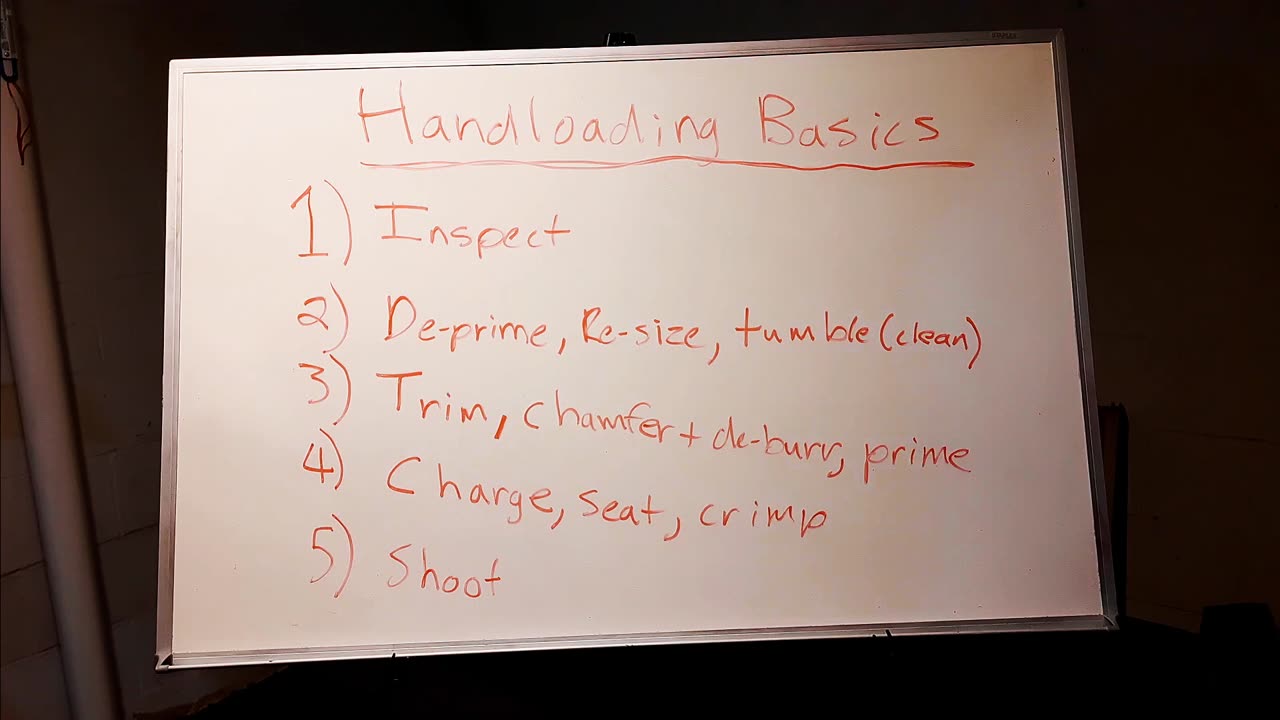 Handloading Basics
1) Inspect
2) De-prime, Re-size, tumble (clean)
3) Trim, Chamfer + de-burr, prime
4) Charge, seat, crimp
5) Shoot